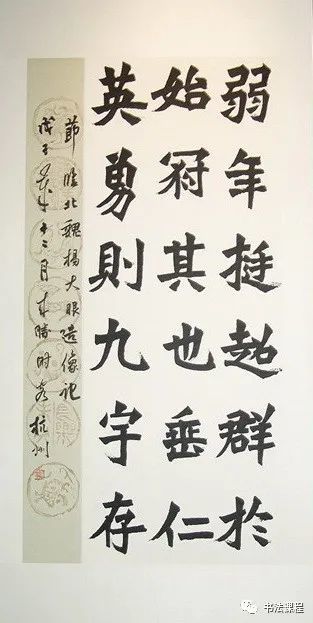 弱年挺超群於
始冠其也垂仁
英勇則九宇存
節臨北魏楊大眼造像記
戊子年十二月勝時客杭州
书法课程